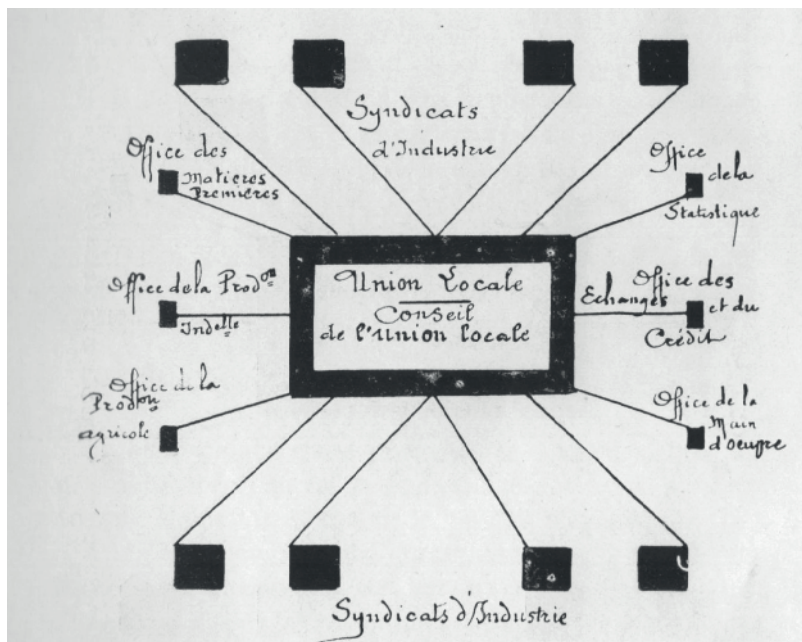 Syndicats
d'Industrie
Office des
Matières
Premières
Office
de la
Statistique
Union Locale
Conseil
de l'Union locale
Office de la Prod.on
Ind.elle
Office des
Echanges
et du
Crédit
Office de la
Prod.on
agricole
Office de la
Main
d'oeuvre
Syndicats d'Industrie